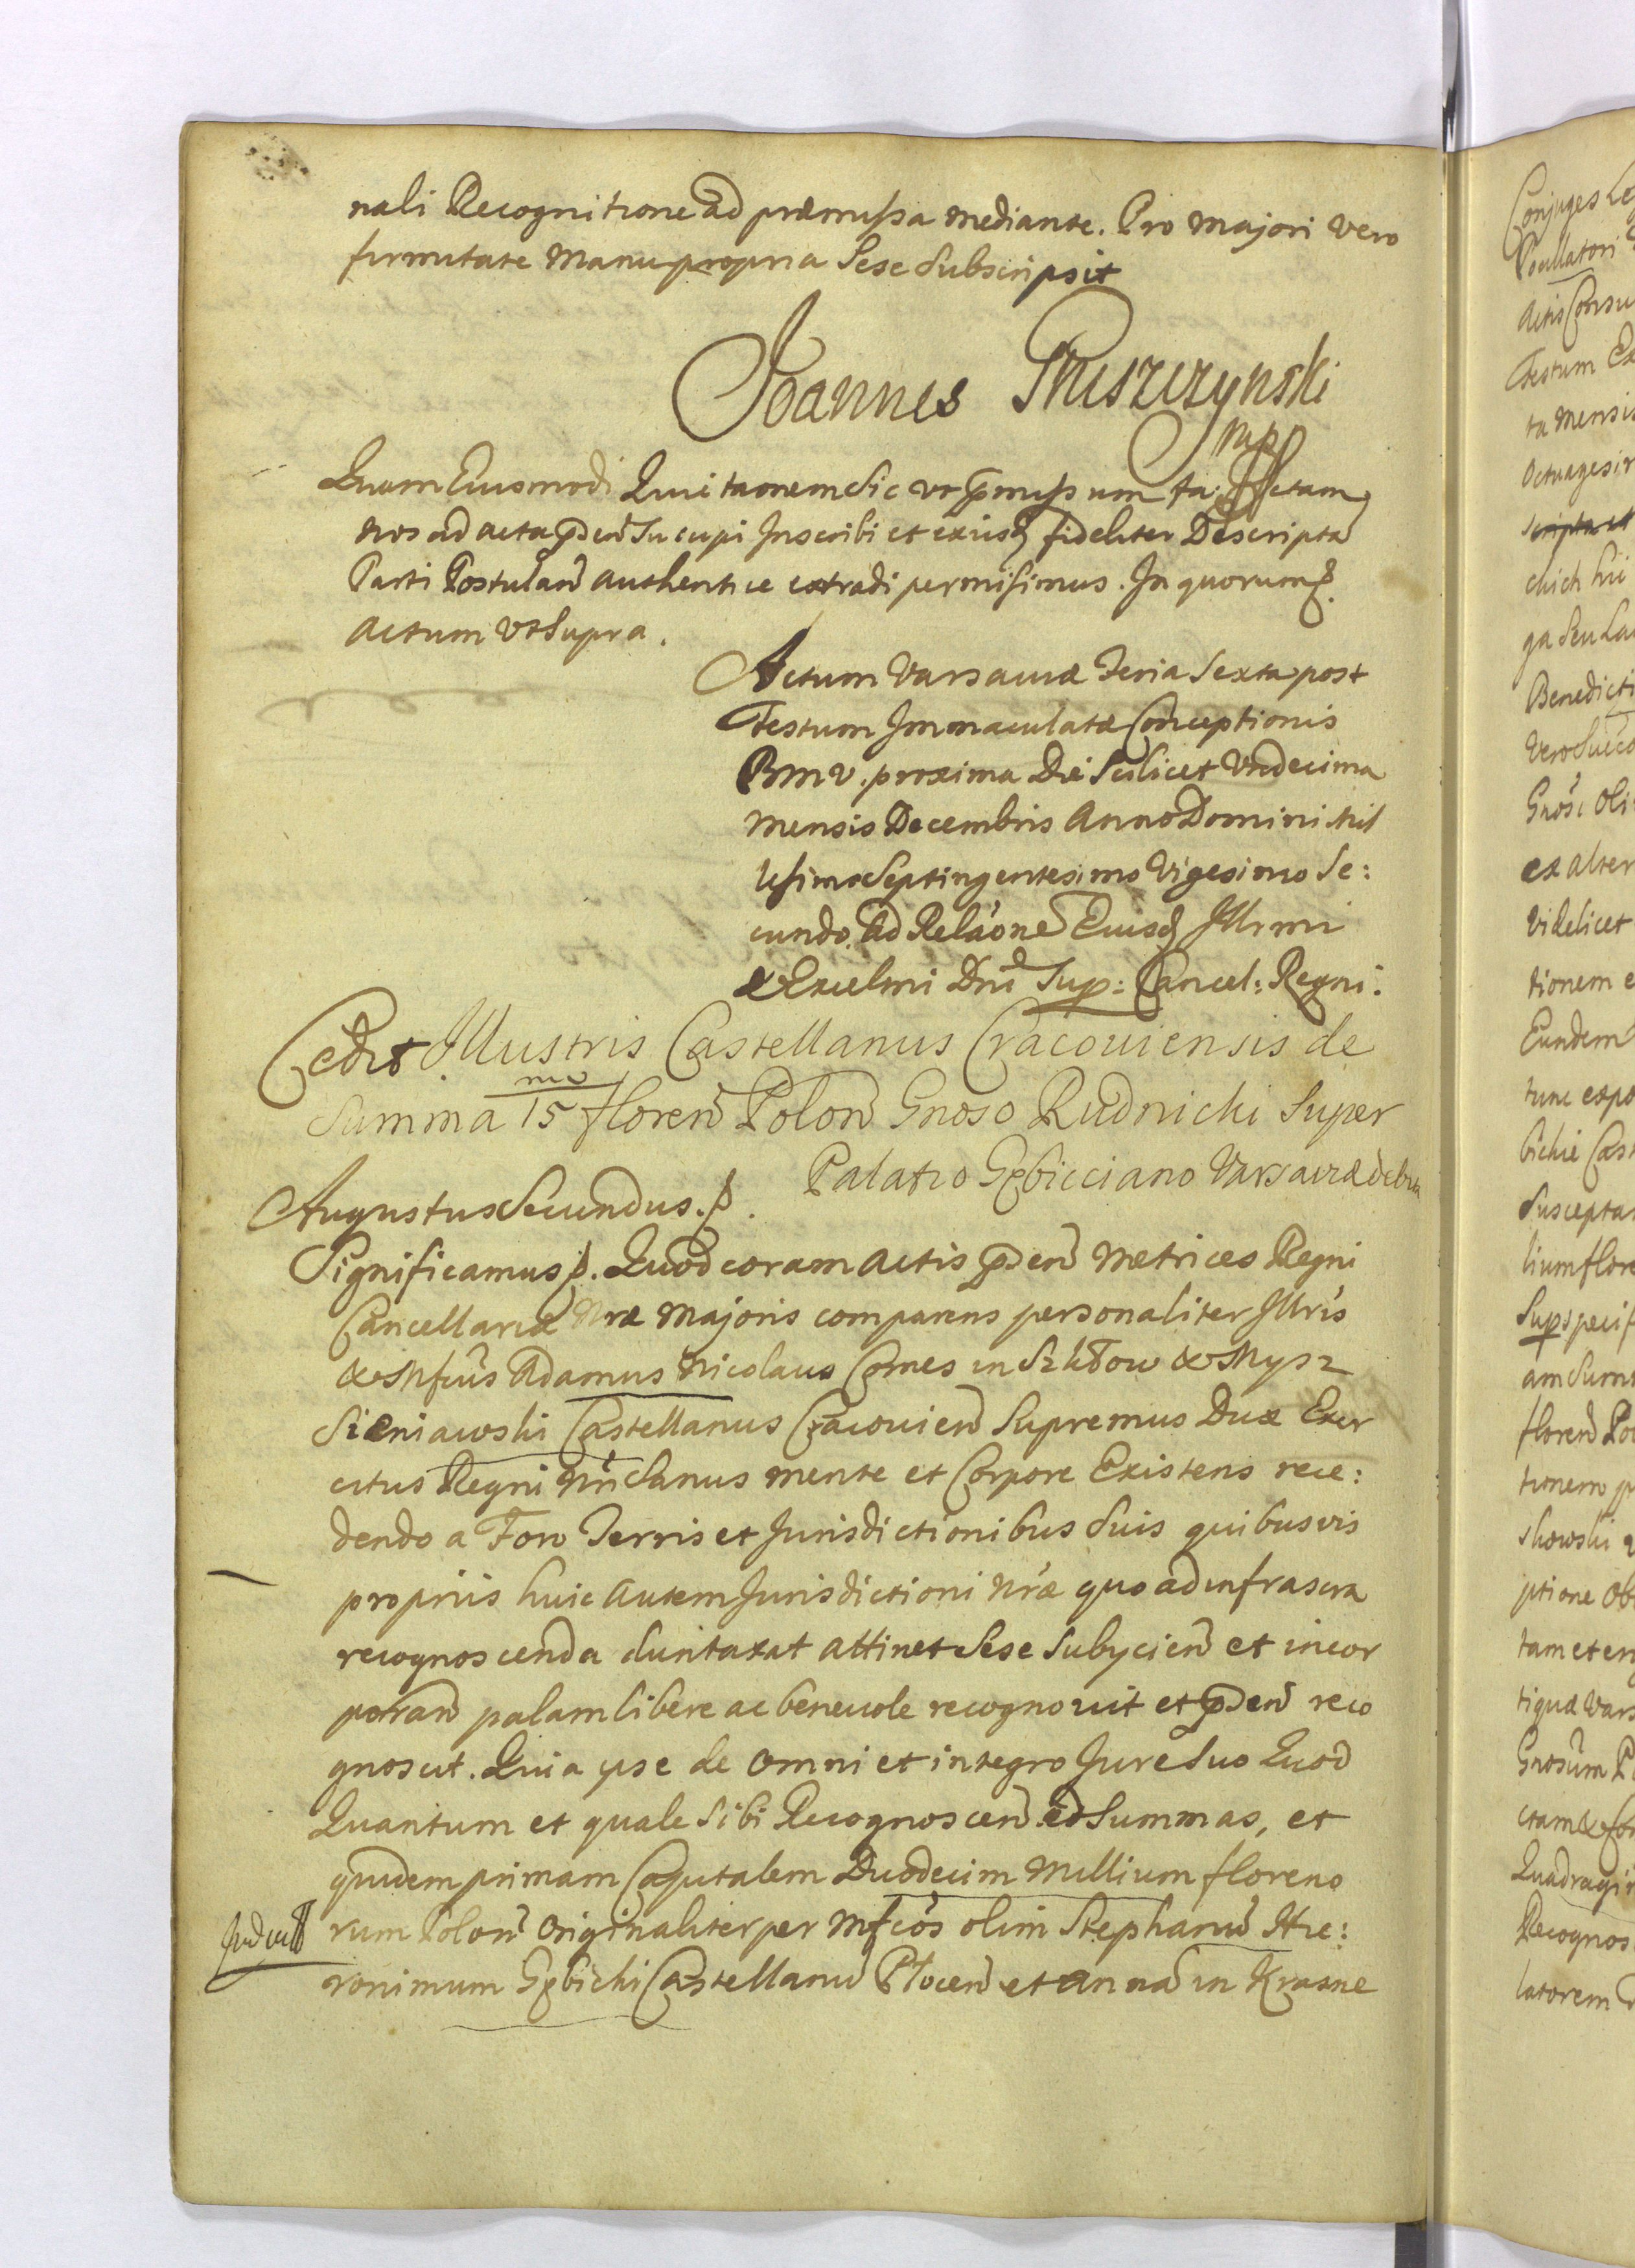 nali Recognitione ad præmissa mediante. Pro Majori vero
firmitate Manu propria Sese Subscripsit
Joannes Pruszczynski
mpp
Quam Eiusmodi Quietaonem Sic vt pmissum
nos ad acta pden Suscipi Inscribi et exiisd fideliter Descripta
Parti Postulan authentice extradi permisimus. In quorum
Actum vt Supra.
Actum Varsauiæ Feria Sexta post
Festum Immaculatæ Conceptionis
BMV. proxima Die Scilicet Vndecima
Mensis Decembris Anno Domini Mil
lesimo Septingentesimo Vigesimo Se:
cundo. Ad Relaone Eiusd Illrmi
& Excelmi Dni Sup: Cancel: Regni.
Cedit Illustris Castellanus Cracouiensis de
Summa 15 m floren Polon Gnoso Rudnicki Super
Palatio Gębicciano Varsauiæ
Augustus Secundus.
Significamus. Quod coram Actis pden Metrices Regni
Cancellariæ Nræ Majoris comparens personaliter Illris
& Mfcus Adamus Nicolaus Comes in Szkłow & Mysz
Sieniawski Castellanus Cracouien Supremus Dux Exer
citus Regni Nri Sanus mente et Corpore Existens rece:
dendo a Foro Terris et Jurisdictionibus Suis quibusvis
propriis huic autem Jurisdictioni Nræ quo ad infrascra
recognoscenda duntaxat attinet Sese Subycien et incor
poran palam libere ac beneuole recognovit et pden reco
gnoscit. Quia ipse de Omni et integro Jure Suo Quod
Quantum et quale Sibi Recognoscen ad Summas, et
quidem primam Capitalem Duodecim Millium floreno
rum Polon Originaliter per Mfcos olim Stephanu Hie:
ronimum Gębicki Castellanu Płocen et Anna in Krasne
Conjuges
Actis Consu
Festum
ta Mensis
ga Seu
Benedicti
ex alter
videlicet
tionem e
Eundem
tunc expo
bickie Cast
Suscepta
lium flore
Sup speci
am Sum
floren Po
tionem
ptione Ob
tam et
tiquæ Vars
Gnosum P
Quadragi
Recognos
latorem